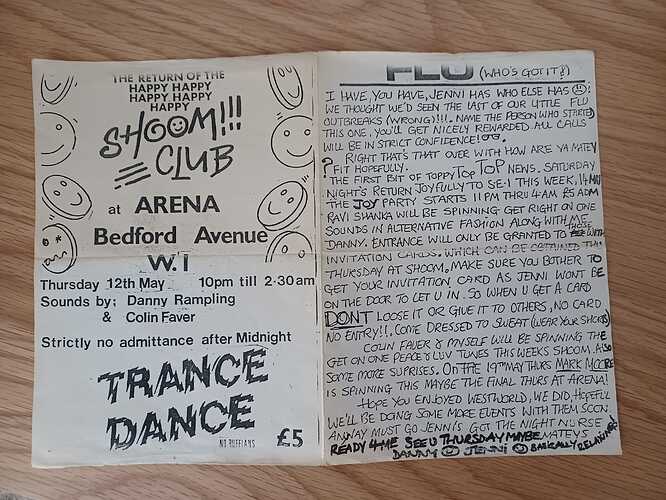 THE RETURN OF THE
HAPPY HAPPY
HAPPY HAPPY
HAPPY
SHOOM!!!
CLUB
at ARENA
Bedford Avenue
W.1
Thursday 12th May 10pm till 2-30am
Sounds by; Danny Rampling
& Colin Faver
Strictly no admittance after Midnight
TRANCE
DANCE
NO RUFFIANS £5
FLU (WHO'S GOT IT?)
I HAVE, YOU HAVE, JENNI HAS WHO ELSE HAS
WE THOUGHT WE'D SEEN THE LAST OF OUR LITTLE FLU
OUTBREAKS (WRONG)!!!. NAME THE PERSON WHO STARTED
THIS ONE, YOU'LL GET NICELY REWARDED. ALL CALLS
WILL BE IN STRICT CONFIDENCE!
RIGHT THAT'S THAT OVER WITH HOW ARE YA MATEY
? FIT HOPEFULLY.
THE FIRST BIT OF TOPPY TOP TOP NEWS. SATURDAY
NIGHT'S RETURN JOYFULLY TO SE-1 THIS WEEK, 14 MAY
THE JOY PARTY STARTS 11PM THRU 4AM £5 ADM
RAVI SHANKA WILL BE SPINNING GET RIGHT ON ONE
SOUNDS IN ALTERNATIVE FASHION ALONG WITH ME
DANNY. ENTRANCE WILL ONLY BE GRANTED TO THOSE WITH
INVITATION CARDS. WHICH CAN BE OBTAINED THIS
THURSDAY AT SHOOM. MAKE SURE YOU BOTHER TO
GET YOUR INVITATION CARD AS JENNI WONT BE
ON THE DOOR TO LET U IN. SO WHEN U GET A CARD
DONT LOOSE IT OR GIVE IT TO OTHERS, NO CARD,
NO ENTRY!!. COME DRESSED TO SWEAT (WEAR YOUR SHORTS)
COLIN FAVER & MYSELF WILL BE SPINNING THE
GET ON ONE PEACE & LUV TUNES THIS WEEKS SHOOM. ALSO
SOME MORE SUPRISES. ON THE 19TH MAY THURS MARK MOORE
IS SPINNING THIS MAYBE THE FINAL THURS AT ARENA!
HOPE YOU ENJOYED WESTWORLD, WE DID, HOPEFUL
WE'LL BE DOING SOME MORE EVENTS WITH THEM SOON.
ANYWAY MUST GO JENNI'S GOT THE NIGHT NURSE
READY 4 ME SEE U THURSDAY MAYBE MATEYS
DANNY JENNI BASICALLY RELAXING!